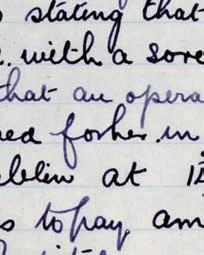 stating that
with a sore
that an opera
ed for her in
blin at 12
s to pay am